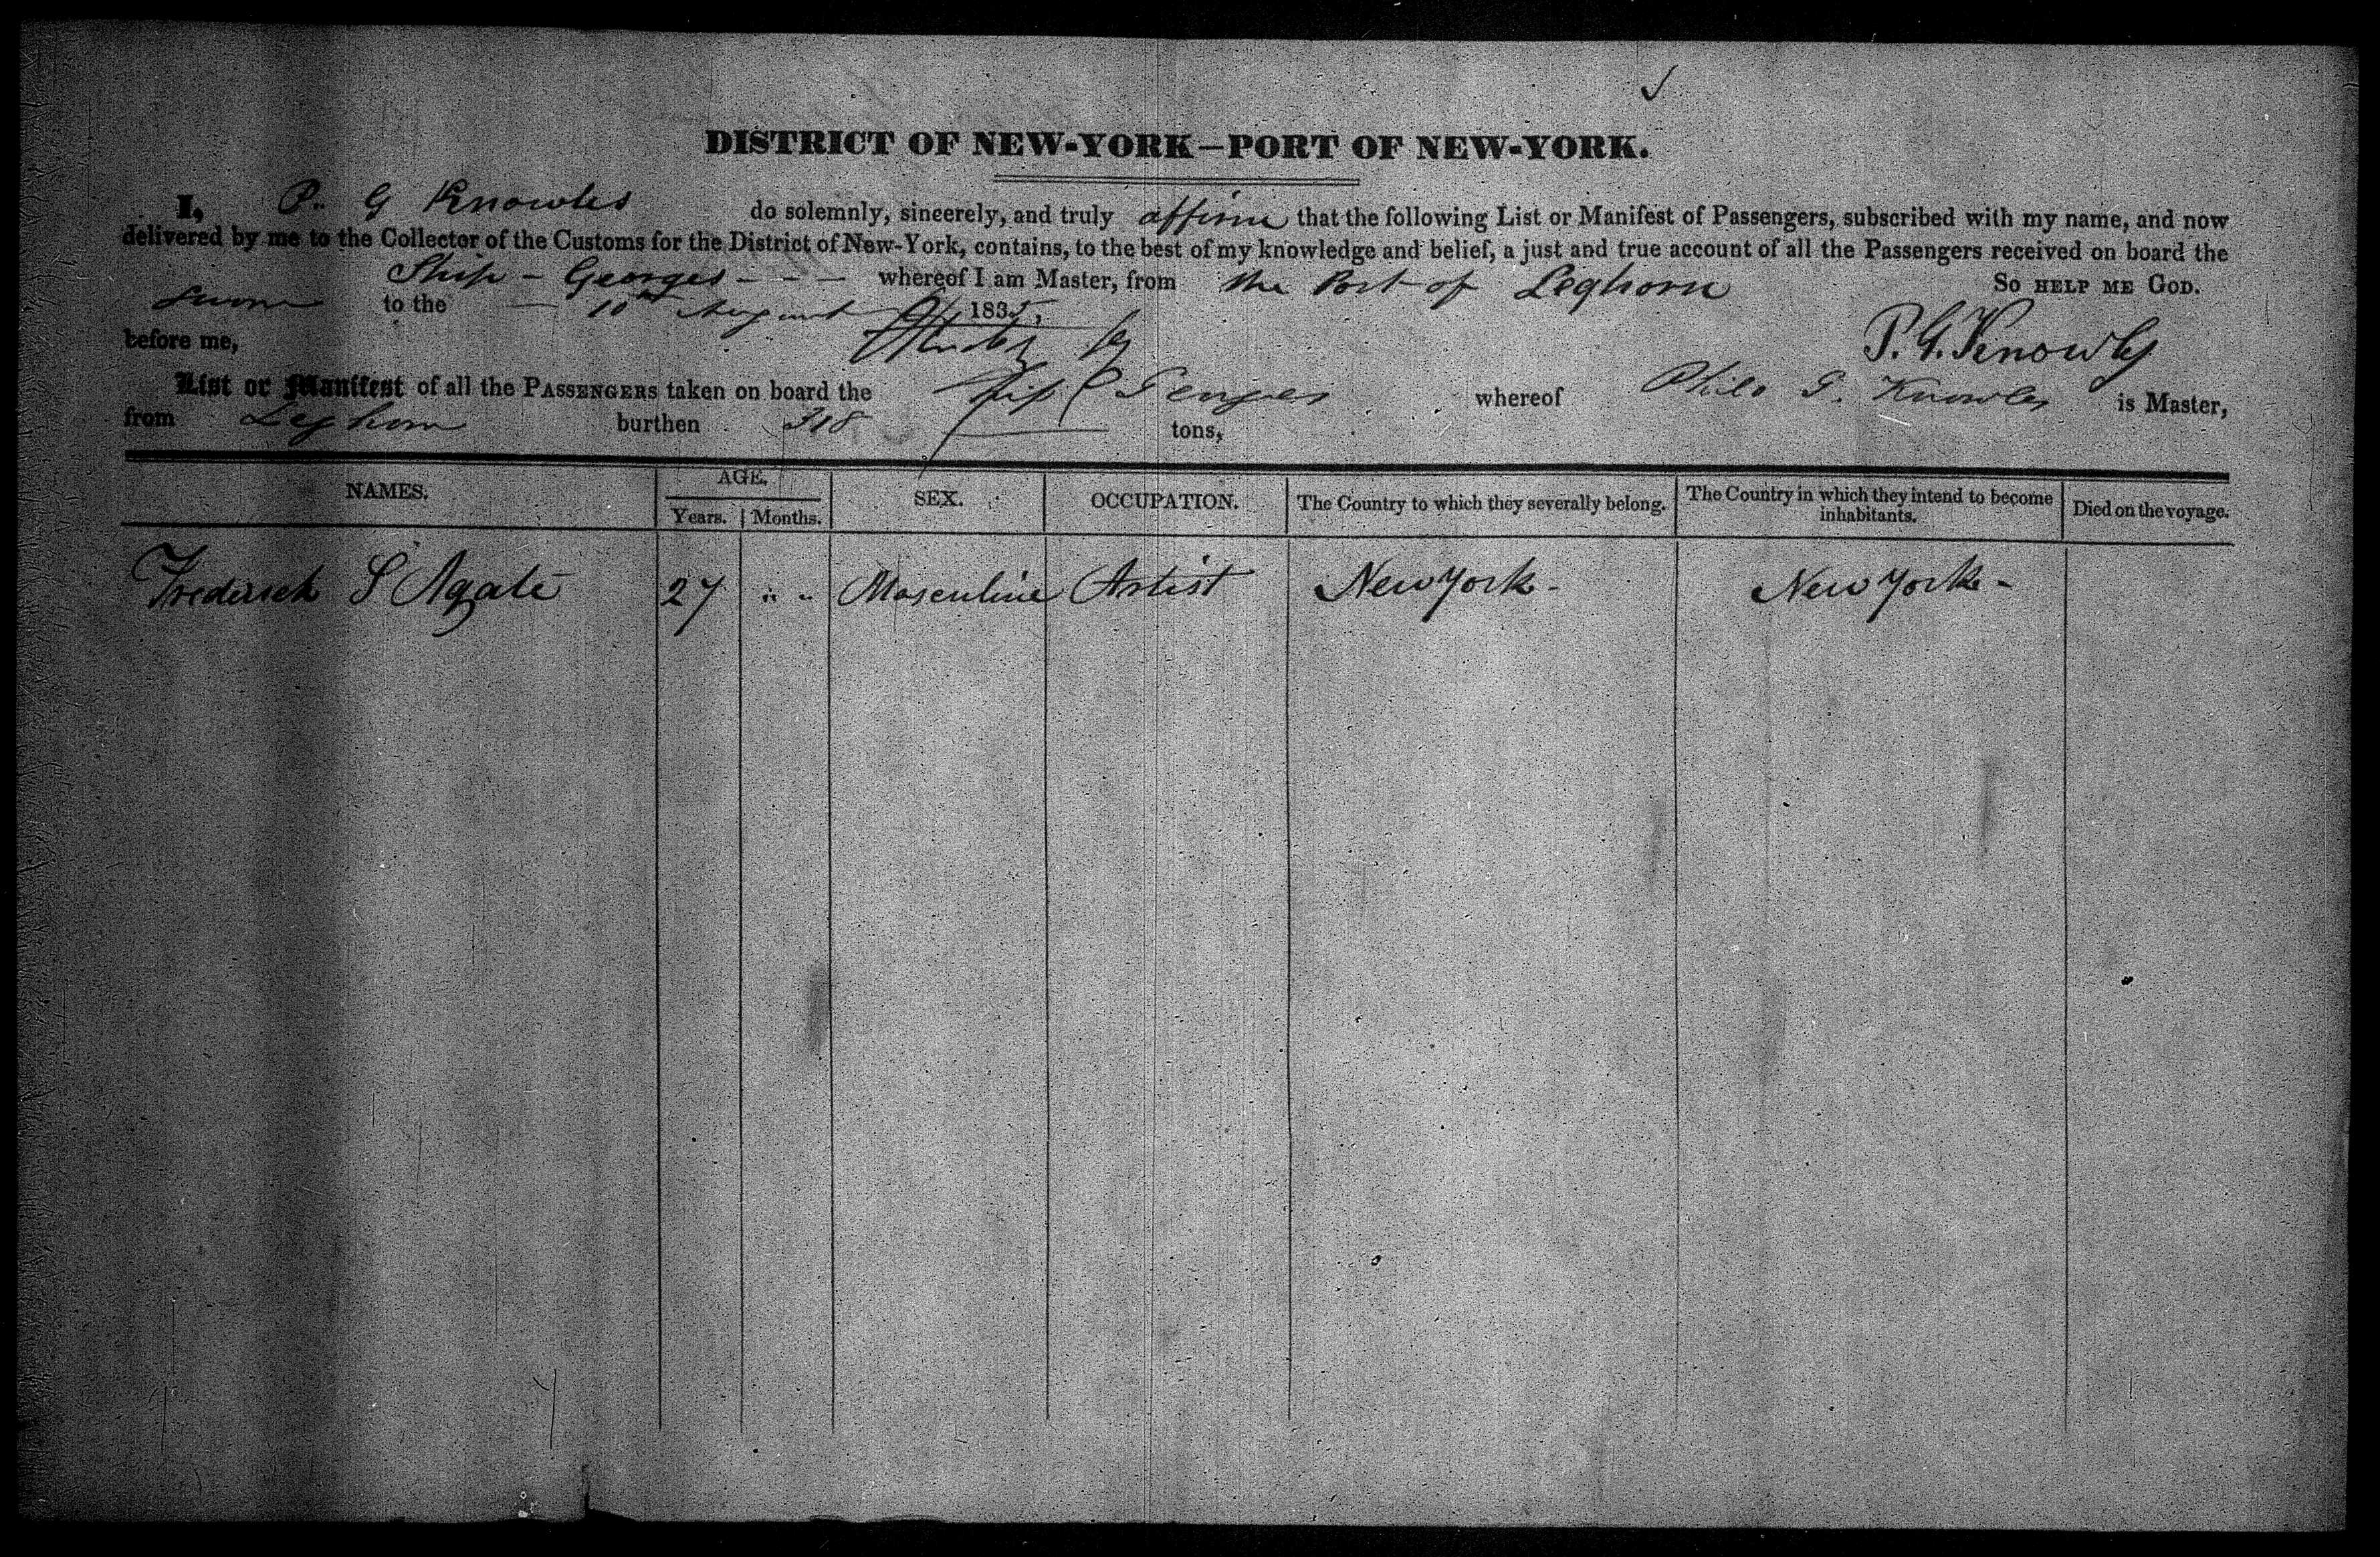 DISTRICT OF NEW-YORK—PORT OF NEW-YORK.
I, P. G Knowles do solemnly, sincerely, and truly affirm that the following List or Manifest of Passengers, subscribed with my name, and now
delivered by me to the Collector of the Customs for the District of New-York, contains, to the best of my knowledge and belief, a just and true account of all the Passengers received on board the
Ship - Georges - - - whereof I am Master, from the Port of Leghorn So HELP ME GOD.
to the 10th August 1835,
before me, P. G. Knowles
List or Manifest of all the PASSENGERS taken on board the Ship Georges whereof Philo G. Knowles is Master,
from Leghorn burthen 318 tons,
NAMES. AGE. SEX. OCCUPATION. The Country to which they severally belong. The Country in which they intend to become inhabitants. Died on the voyage.
Years. Months.
Frederick S Agate 27 " " Masculine Artist New York - New York -